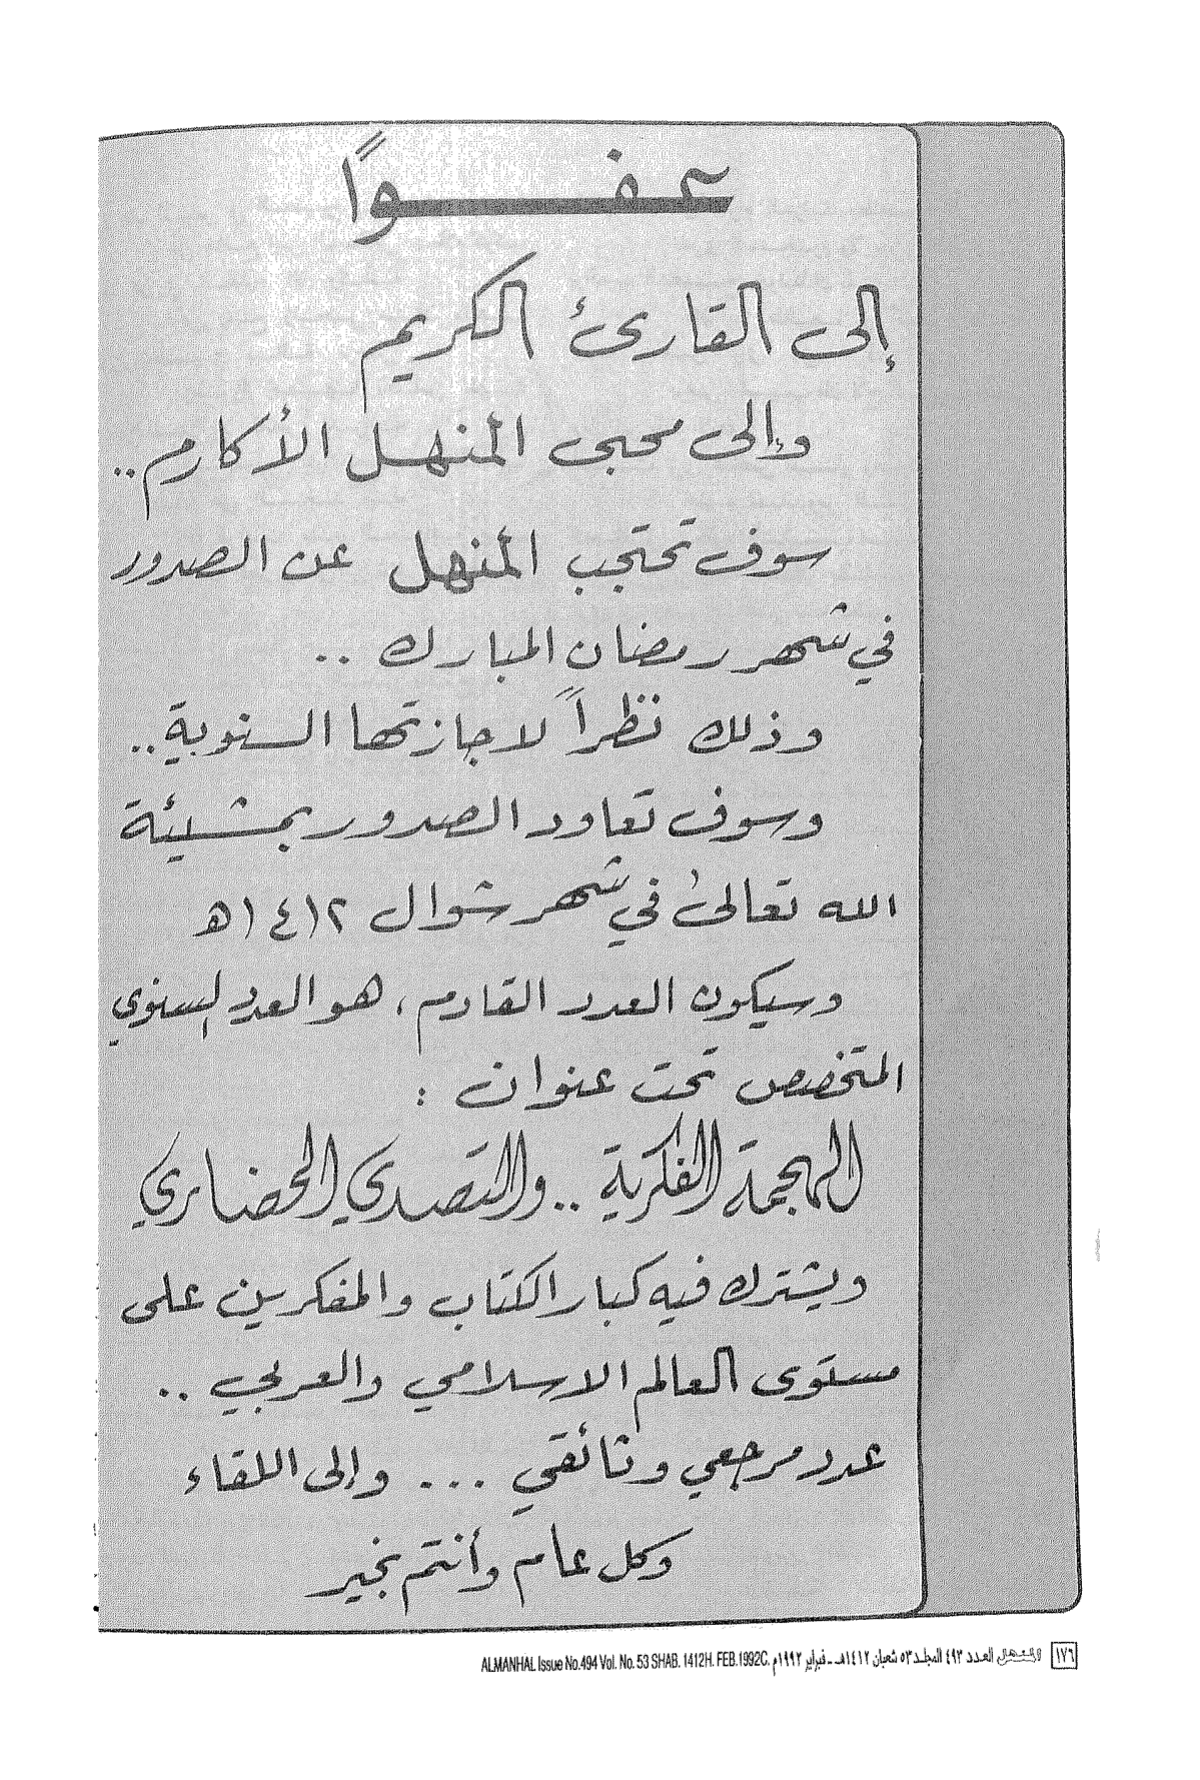 عفـــــوًا
إلى القارئ الكريم
وإلى محبى المنهل الأكارم..
سوف تحتجب المنهل عن الصدور
في شهر رمضان المبارك ..
وذلك نظراً لاجازتها السنوية..
وسوف تعاود الصدور بمشيئة
الله تعالى في شهر شوال ١٤١٢ه
وسيكون العدد القادم، هو العدد السنوي
المتخصص تحت عنوان :
الهجمة الفكرية .. والتصدي الحضاري
ويشترك فيه كبار الكتاب والمفكرين على
مستوى العالم الاسلامي والعربي ..
عدد مرجعي وثائقي ... وإلى اللقاء
وكل عام وأنتم بخير
١٧٦ المنهل العدد ٤٩٣ المجلد ٥٣ شعبان ١٤١٢هـ - فبراير ١٩٩٢م ALMANHAL Issue No.494 Vol. No. 53 SHAB. 1412H. FEB.1992C.